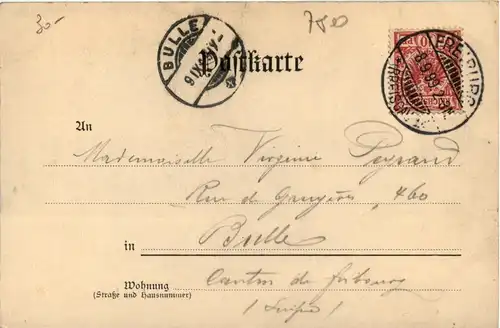 30.-
BULLE
Postkarte
FREIBURG
An
Mademoiselle Virginie Peyraud
Rue de Gruyères, 460
in
Bulle
Wohnung
(Straße und Hausnummer)
Canton de fribourg
(Suisse)